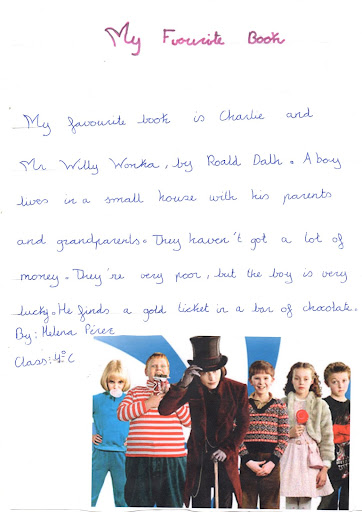 My Fvourite Book
My favourite book is Charlie and
Mr Willy Wonka, by Roald Dalh. A boy
lives in a small house with his parents
and grandparents. They haven't got a lot of
money. They're very poor, but the boy is very
lucky. He finds a gold ticket in a bar of chocolate.
By: Helena Pérez
Class: 4°C